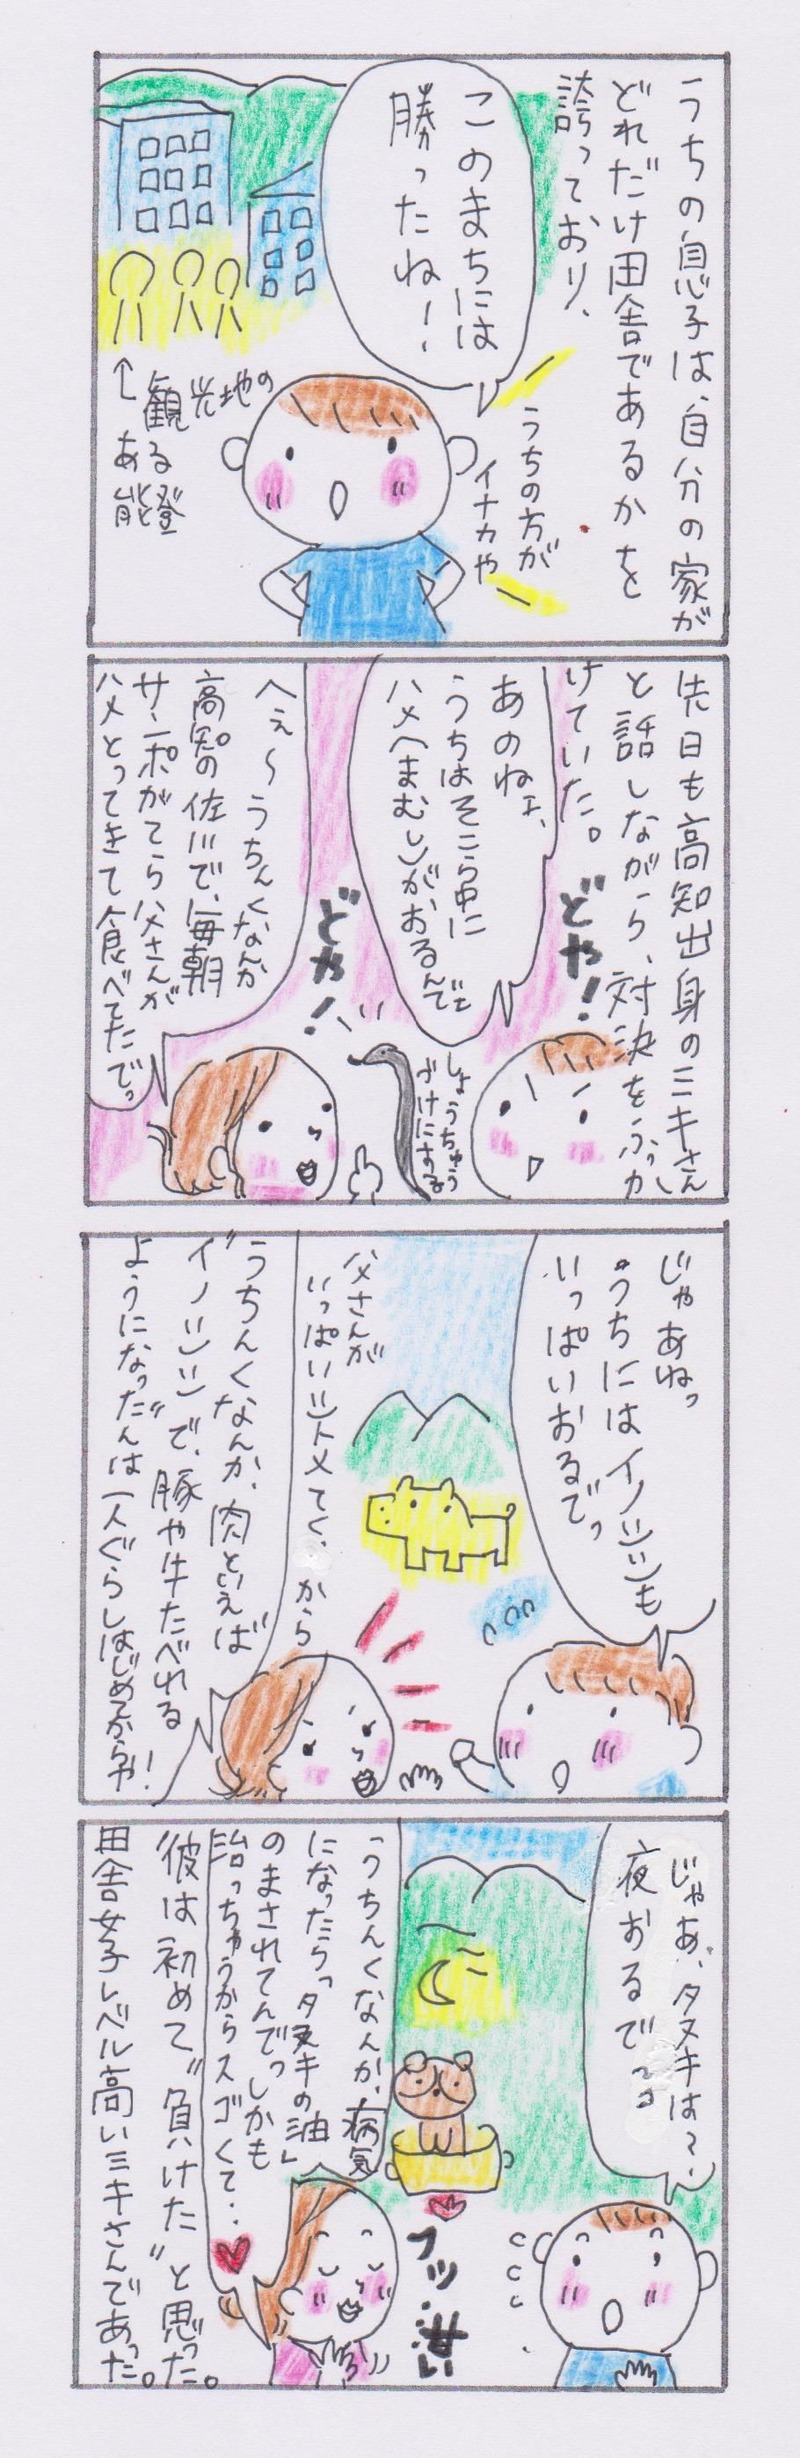 うちの息子は、自分の家が
どれだけ田舎であるかを
誇っており、
このまちには
勝ったね！
うちの方が
イナカや
↑観光地の
ある
能登
先日も高知出身のミキさん
と話しながら、対決をふっか
けていた。
どや！
あのねェ、
うちはそこら中に
ハメ（まむし）がおるんでェ
しょうちゅう
づけにする
どや！
へぇ〜うちんくなんか
高知の佐川で、毎朝
サンポがてら父さんが
ハメとってきて食べてたでっ
じゃあねっ
うちにはイノシシも
いっぱいおるでっ
父さんが
いっぱいシトメてく、から
うちんくなんか、肉といえば
”イノシシ”で、豚や牛たべれる
ようになっだんは一人ぐらしはじめてからや！
じゃあ、タヌキは？
夜おるでっ
「うちんくなんか、病気
になったら「タヌキの油」
のまされてんでっしかも
治っちゃうからスゴくて・・
フッ・・甘い
彼は初めて”負けた”と思った。
田舎女子レベル高いミキさんであった。